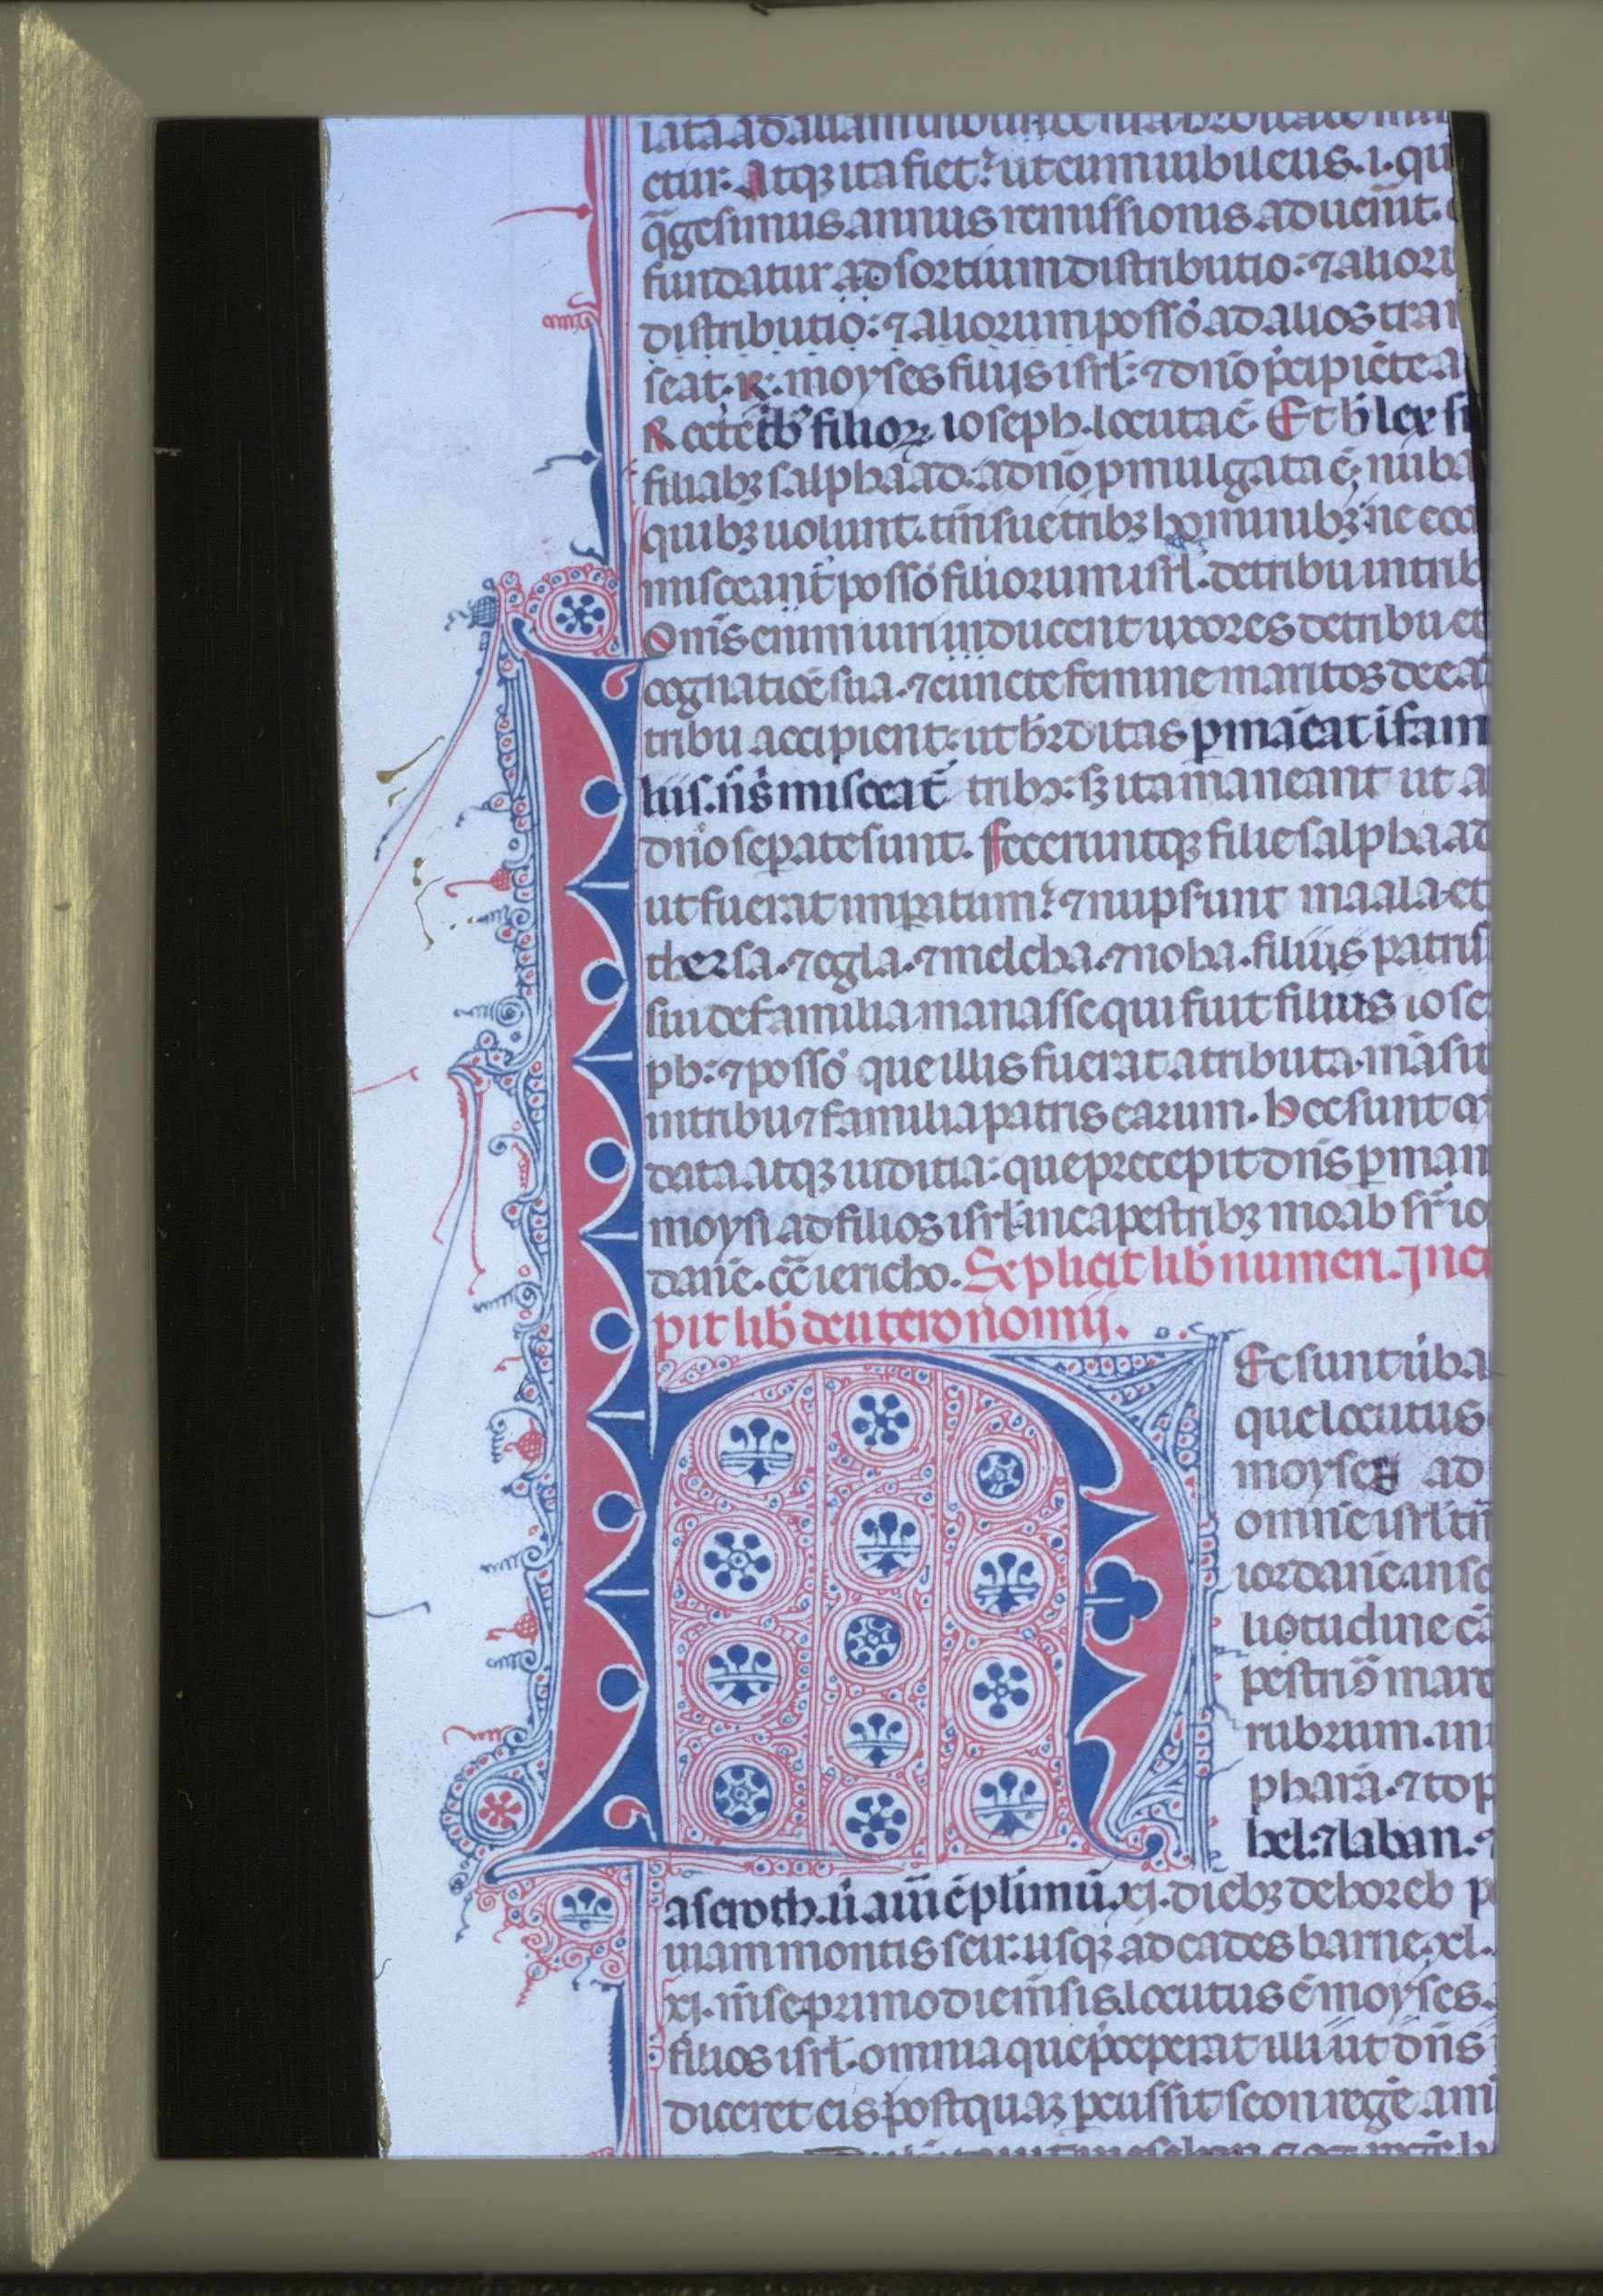 etur. Atqꝫ ita fiet: ut cum iubileus .i. qu
q̄gesimus annus remissionis aduen̄it.
fundatur ad sortium distributio: ⁊ alioru
distributio: ⁊ aliorum posso᷑ ad alios tran
seat. R. moyses filijs isrl̄: ⁊ dn̄o p̄cipiēte a
Recte tb᷒ filioꝝ ioseph locuta ē. Et h̄ lex su
filiabꝫ salphaad a dn̄o pmulgata ē: nuba
quibꝫ uolunt. tn̄ sue tribꝫ hominibꝫ: ne co
misceant᷑ posso᷑ filiorum isrl̄. de tribu in trib
Om̄s enim uiri ducent uxores de tribu et
cognatiōe sua. ⁊ cuncte femine maritos de ea
tribu accipient: ut h̄ditas p̄maneat ī fam
liis. n̄ s᷑ misceāt᷑ tribꝫ: sꝫ ita maneant ut a
dn̄o sep̄ate sunt. feceruntqꝫ filie salphaad
ut fuerat imp̄atum: ⁊ nupsunt maala et
thersa. ⁊ egla. ⁊ melcha. ⁊ noha. filiis patris
sui de familia manasse qui fuit filius iose
ph: ⁊ posso᷑ que illis fuerat atributa. māsit
in tribu ⁊ familia patris earum. hec sunt m̄
data atqꝫ iuditia: que precepit dn̄s p̄ man
moysi ad filios isrl̄ in capestribꝫ moab sr̄ io
danē. cc̄ iericho. Explicit lib̄ numeri. Inci
pit lib̄ deuteronomij.
H Ec sunt u̇ba
que locutus
moyses ad
omnē isrl̄ tn̄
iordanē in so
litudine cā
pestri ꝯ mare
rubrum. in
pharā. ⁊ top
hel: ⁊ laban. ⁊
aseroth. ū aurī ē plimū. xi. diebꝫ de horeb p
uiam montis seir: usqꝫ ad cades barne. xl.
xi. m̄se primo die m̄sis. locutus ē moyses.
filios isrl̄. omnia que p̄ceperat illi ut dn̄s
diceret eis postquaꝫ p̄cussit seon regē am